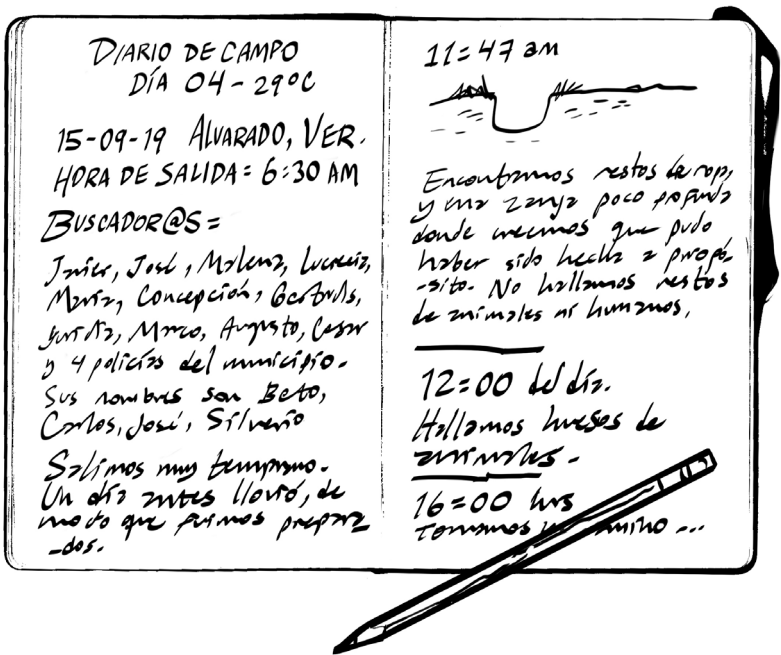 DIARIO DE CAMPO
DÍA 04 - 29°C
15-09-19 ALVARADO, VER.
HORA DE SALIDA = 6:30 AM
BUSCADOR@S =
Javier, José, Malena, Lucrecia,
María, Concepción, Gertrudis,
Marco, Augusto, Cesar
y 4 policías del municipio.
Sus nombres son Beto,
Carlos, José, Silverio
Salimos muy temprano.
Un día antes llovió, de
modo que fuimos prepara-
-dos.
11:47 am
Encontramos restos de ropa,
y una zanja poco profunda
donde creemos que pudo
haber sido hecha a propó-
-sito. No hallamos restos
de animales ni humanos.
12:00 del día.
Hallamos huesos de
animales.
16:00 hrs
Tomamos ...